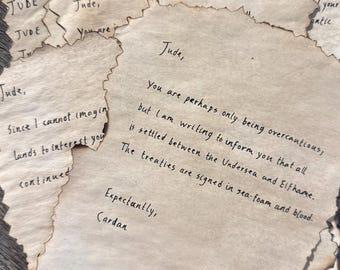 JUDE
JUDE
Jude,
You are
your
antic.
Jude,
Since I cannot imagin
lands to interest you
continued
Jude,
You are perhaps only being overcautious,
but I am writing to inform you that all
is settled between the Undersea and Elfhame.
The treaties are signed in sea-foam and blood.
Expectantly,
Cardan